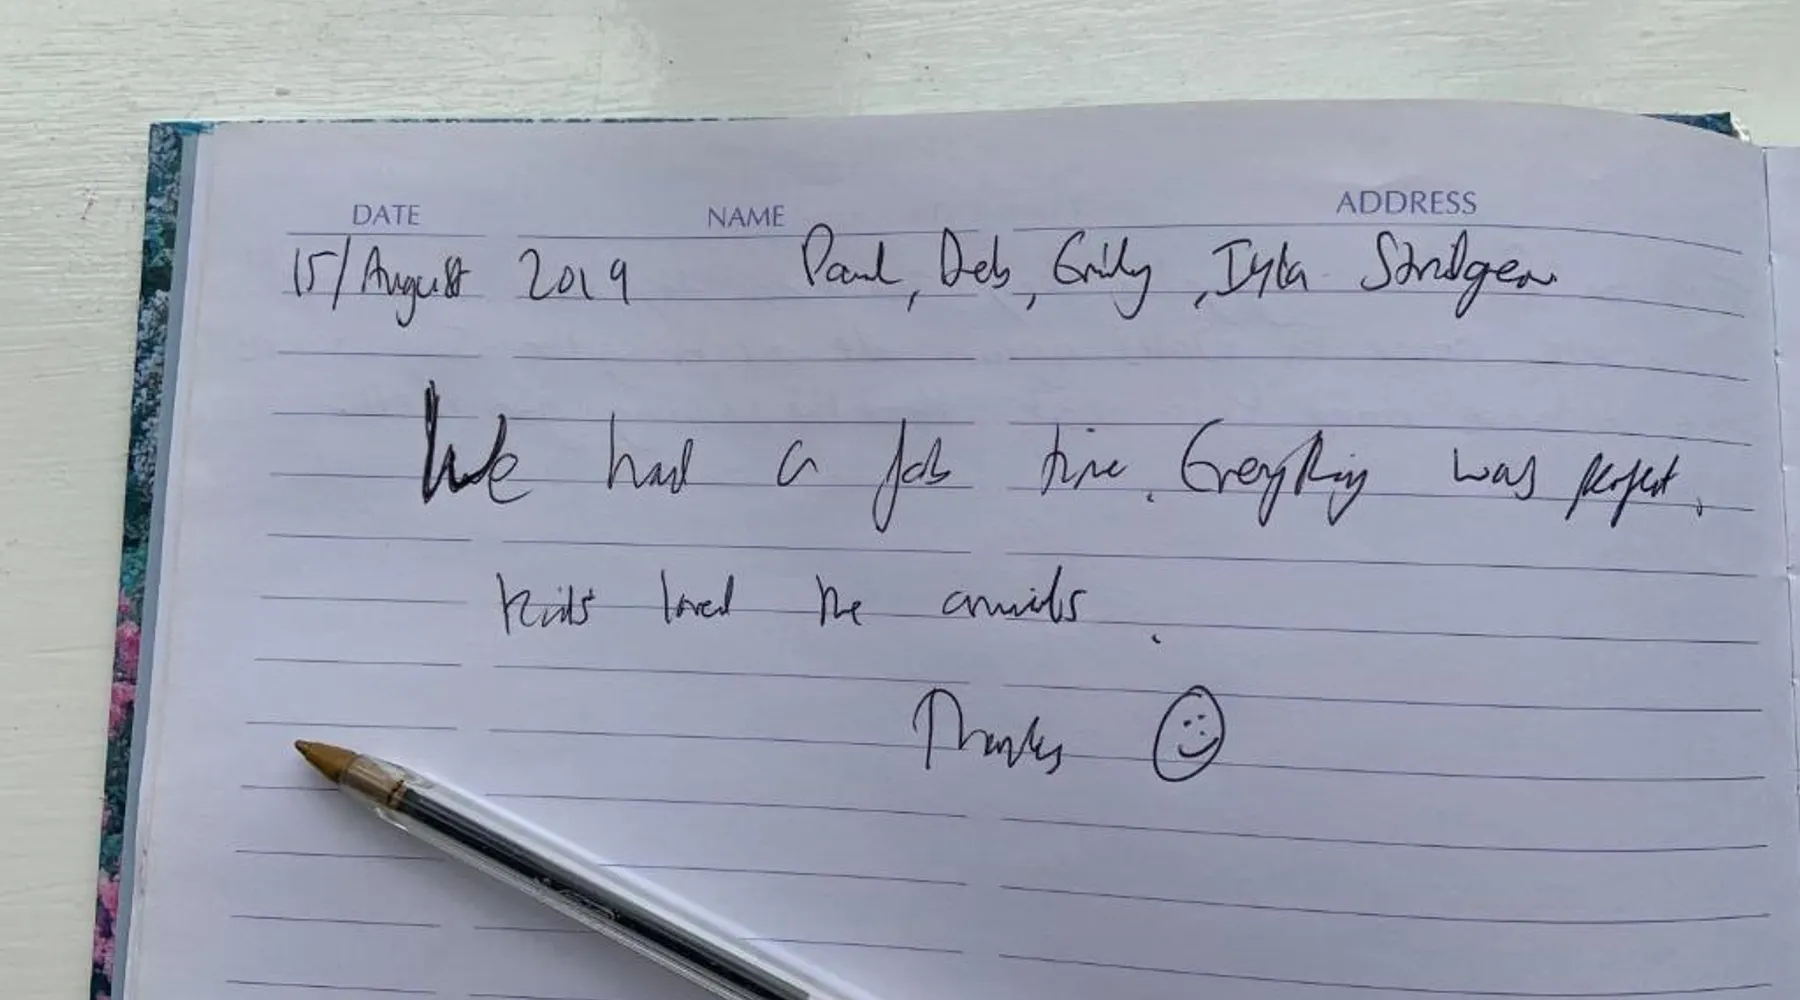 DATE NAME ADDRESS
15/August 2019 Paul, Deb, Emily, Isla
We had a fab time. Everything was perfect.
Kids loved the animals.
Thanks